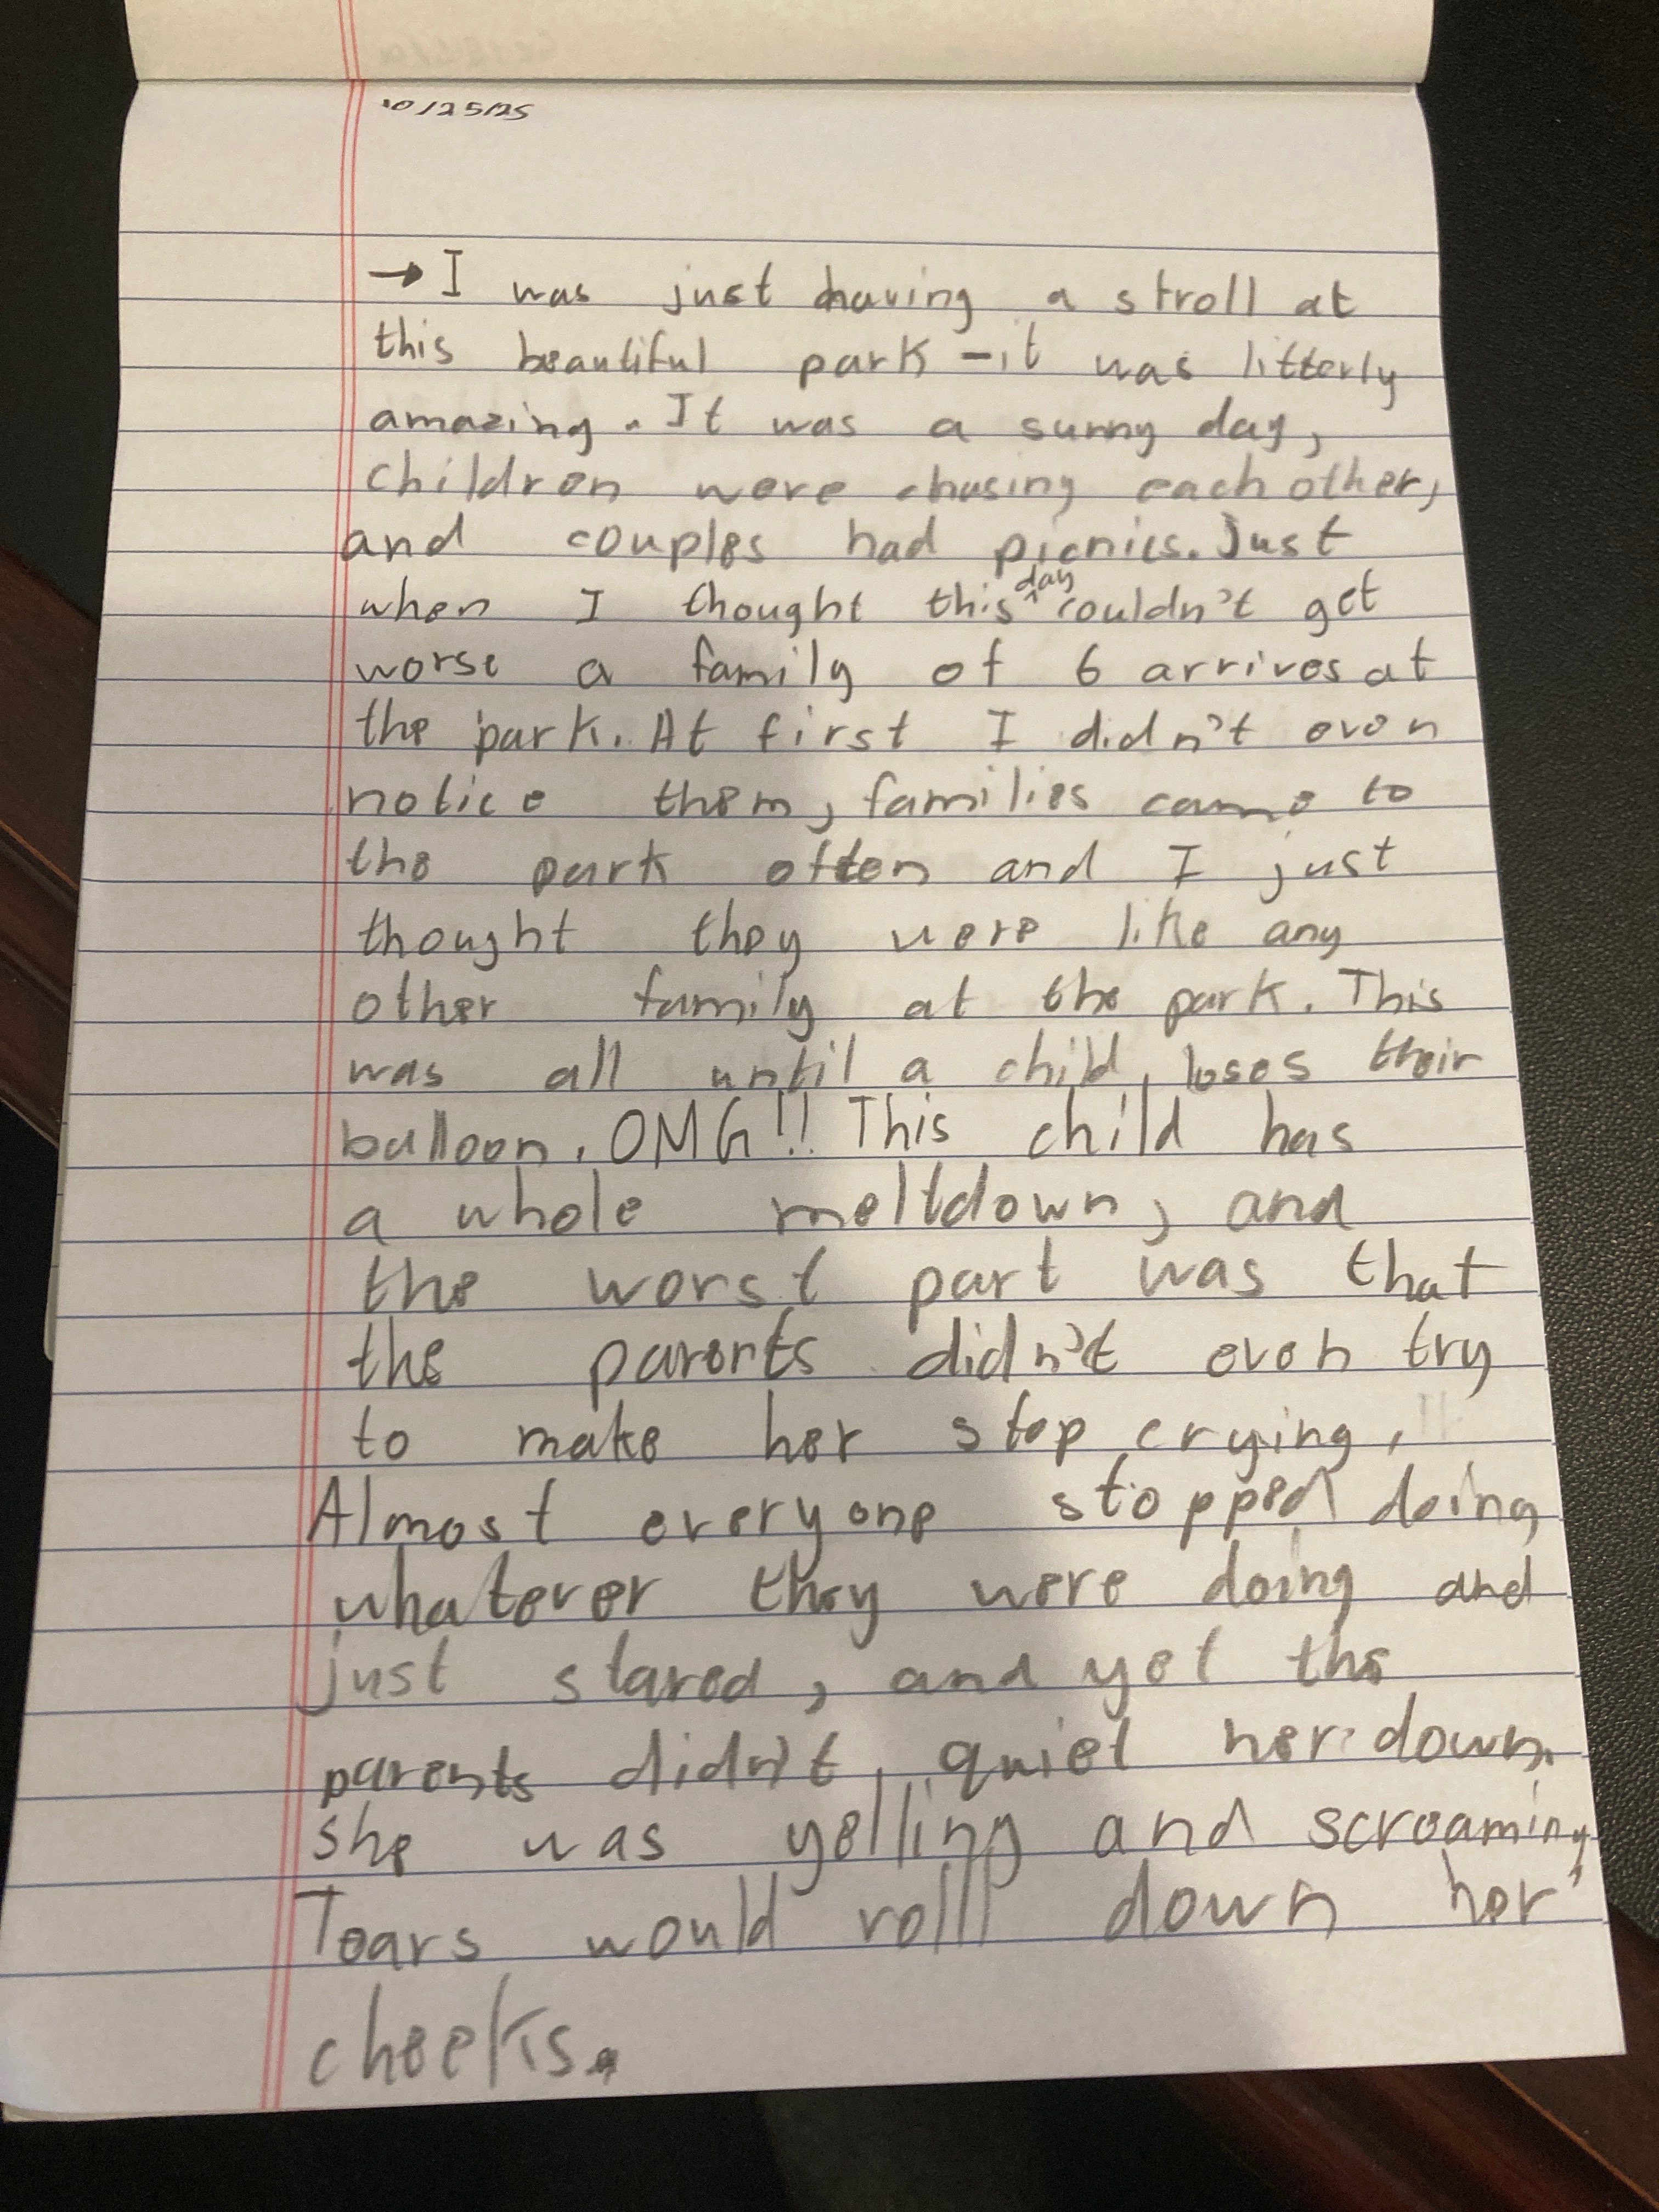 10/25/25
→ I was just having a stroll at
this beautiful park - it was litterly
amazing. It was a sunny day,
children were chasing each other,
and couples had picnics. Just
when I thought this ^day couldn't get
worse a family of 6 arrives at
the park. At first I didn't even
notice them, families came to
the park often and I just
thought they were like any
other family at the park. This
was all until a child loses their
balloon. OMG!! This child has
a whole meltdown, and
the worst part was that
the parents didn't even try
to make her stop crying.
Almost everyone stopped doing
whatever they were doing and
just stared, and yet the
parents didn't quiet her down.
she was yelling and screaming,
Tears would roll down her
cheeks.